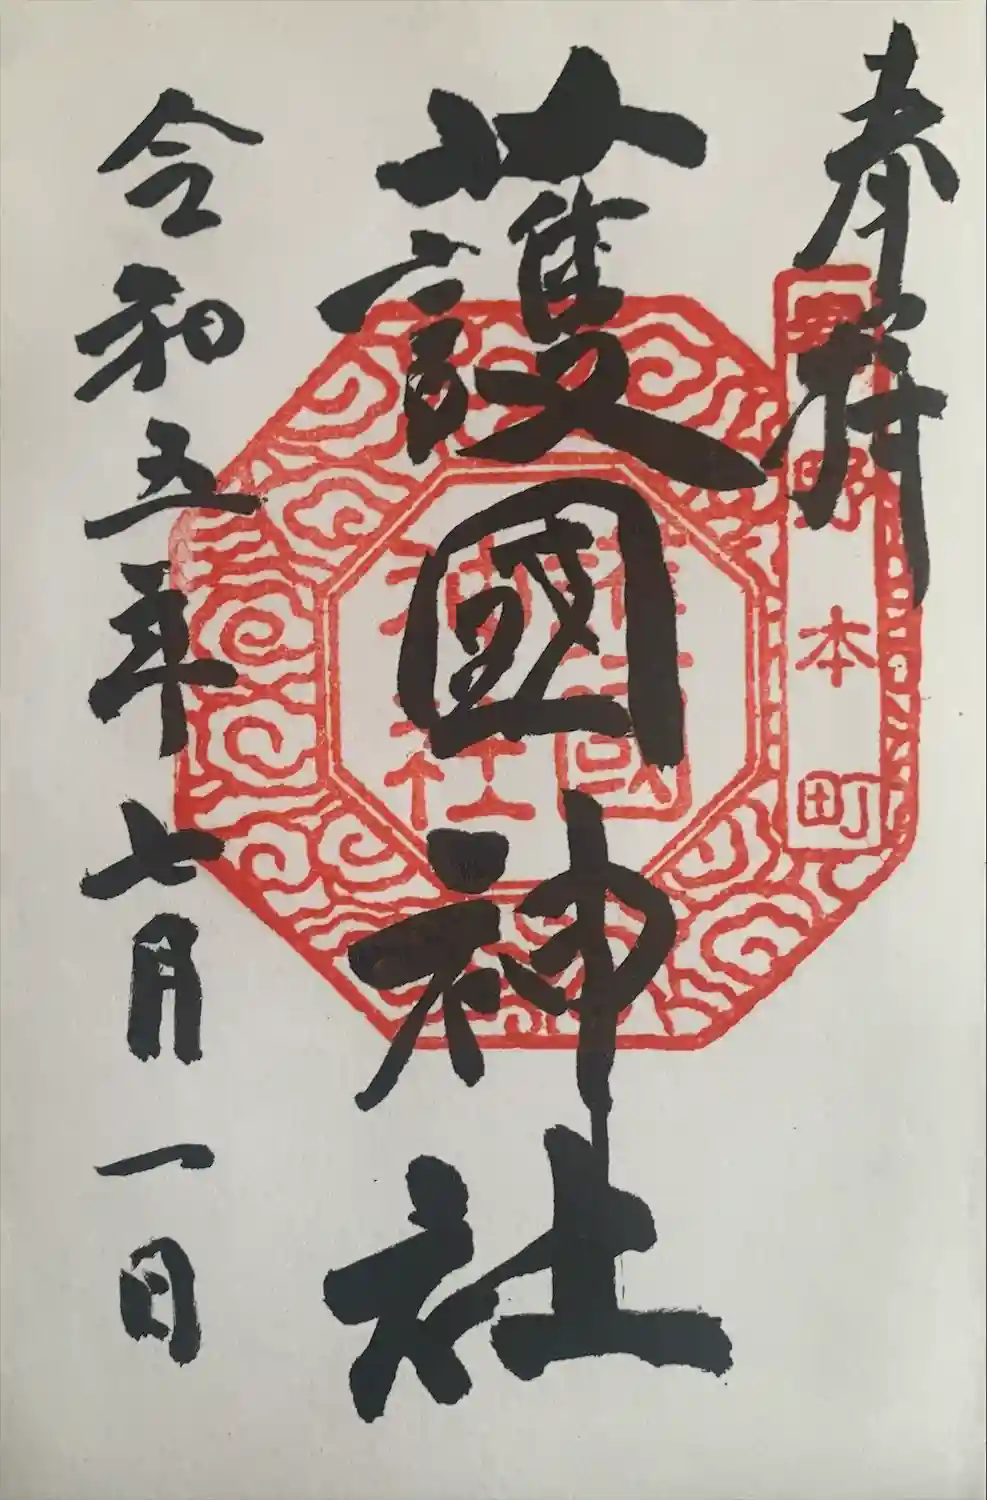 奉拝
野本町
護國神社
護國神社
令和五年七月一日